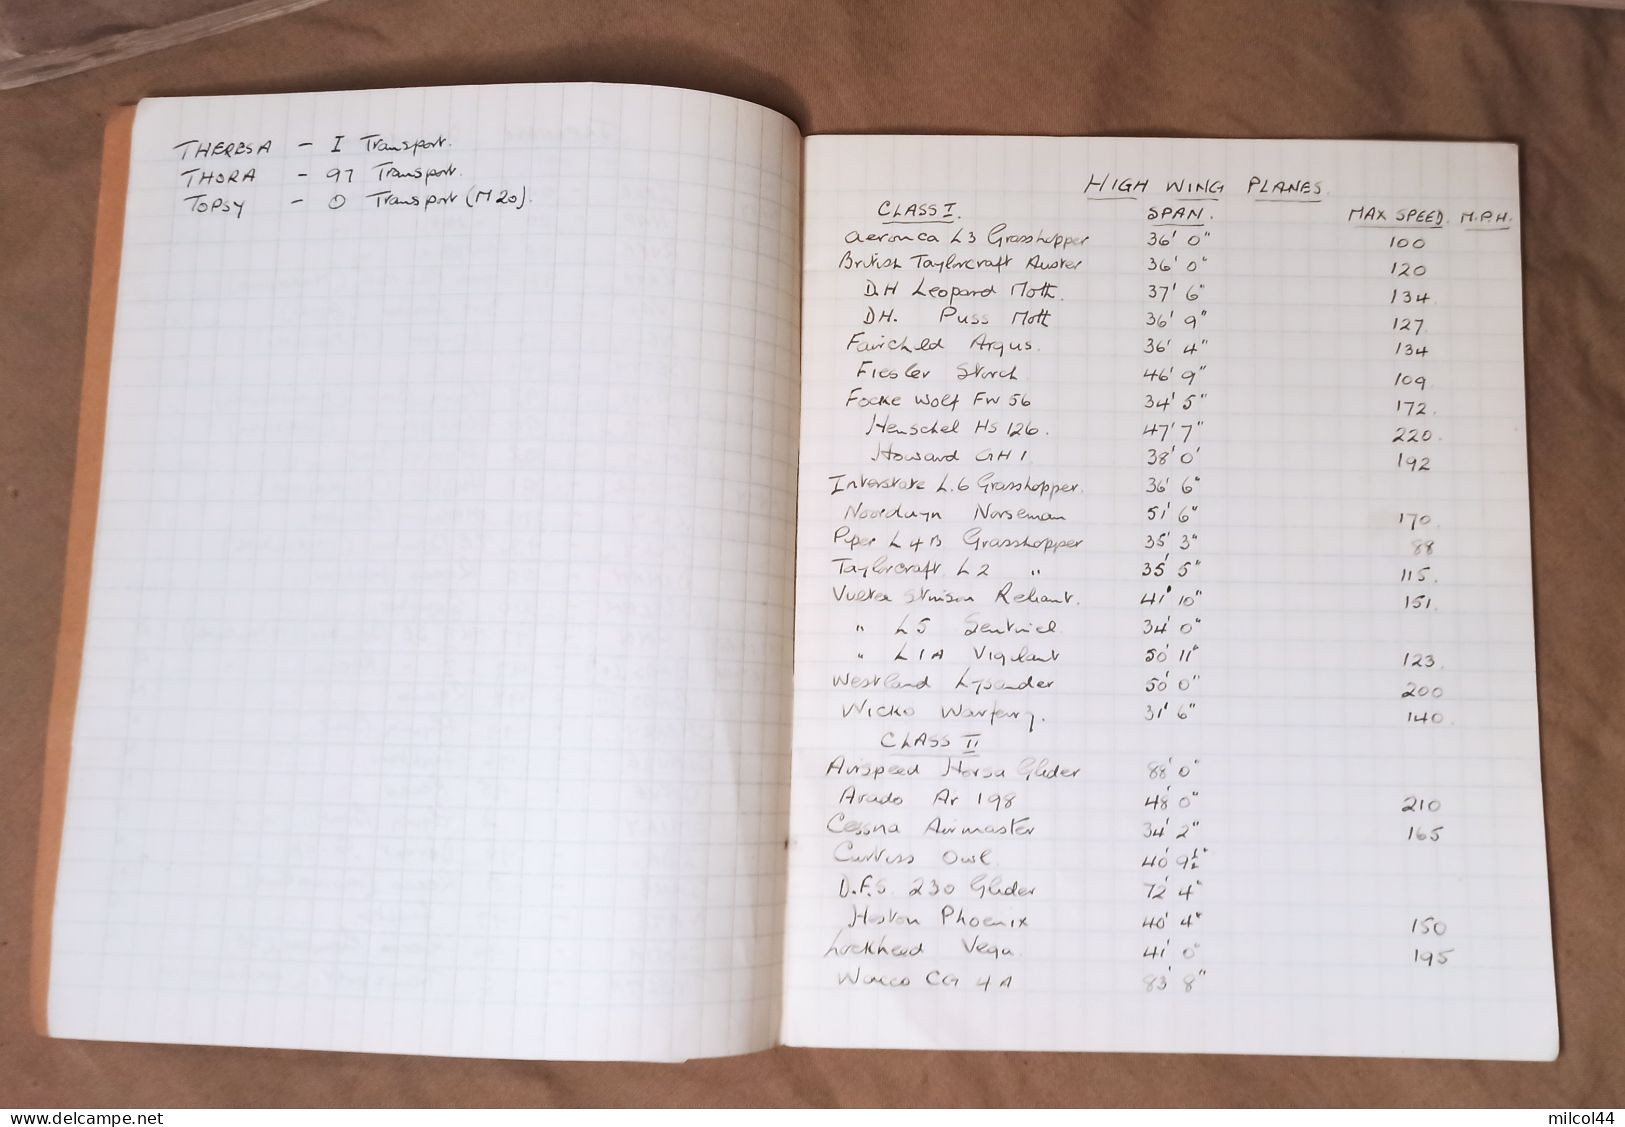 THERESA - I Transport.
THORA - 97 Transport.
TOPSY - O Transport (M20).
HIGH WING PLANES.
CLASS I. SPAN. MAX SPEED. M.P.H.
Aeronca L3 Grasshopper 36' 0" 100
British Taylorcraft Auster 36' 0" 120
D.H Leopard Moth. 37' 6" 134
DH. Puss Moth 36' 9" 127
Fairchild Argus. 36' 4" 134
Fiesler Storch 46' 9" 109
Focke Wolf FW 56 34' 5" 172.
Henschel Hs 126. 47' 7" 220.
Howard GH 1 38' 0' 192
Interstate L.6 Grasshopper. 36' 6"
Noorduyn Norseman 51' 6" 170
Piper L4B Grasshopper 35' 3" 88
Taylorcraft L2 " 35' 5" 115.
Vultee Stinson Reliant. 41' 10" 151
" L5 Sentinel 34' 0"
" L1A Vigilant 50' 11" 123.
Westland Lysander 50' 0" 200
Wicko Warferry. 31' 6" 140.
CLASS II
Airspeed Horsa Glider 88' 0"
Arado Ar 198 48' 0" 210
Cessna Airmaster 34' 2" 165
Curtiss Owl. 40' 9½"
D.F.S. 230 Glider 72' 4"
Heston Phoenix 40' 4" 150
Lockheed Vega. 41' 0" 195
Waco CG 4A 83' 8"
delcampe.net
milcol44